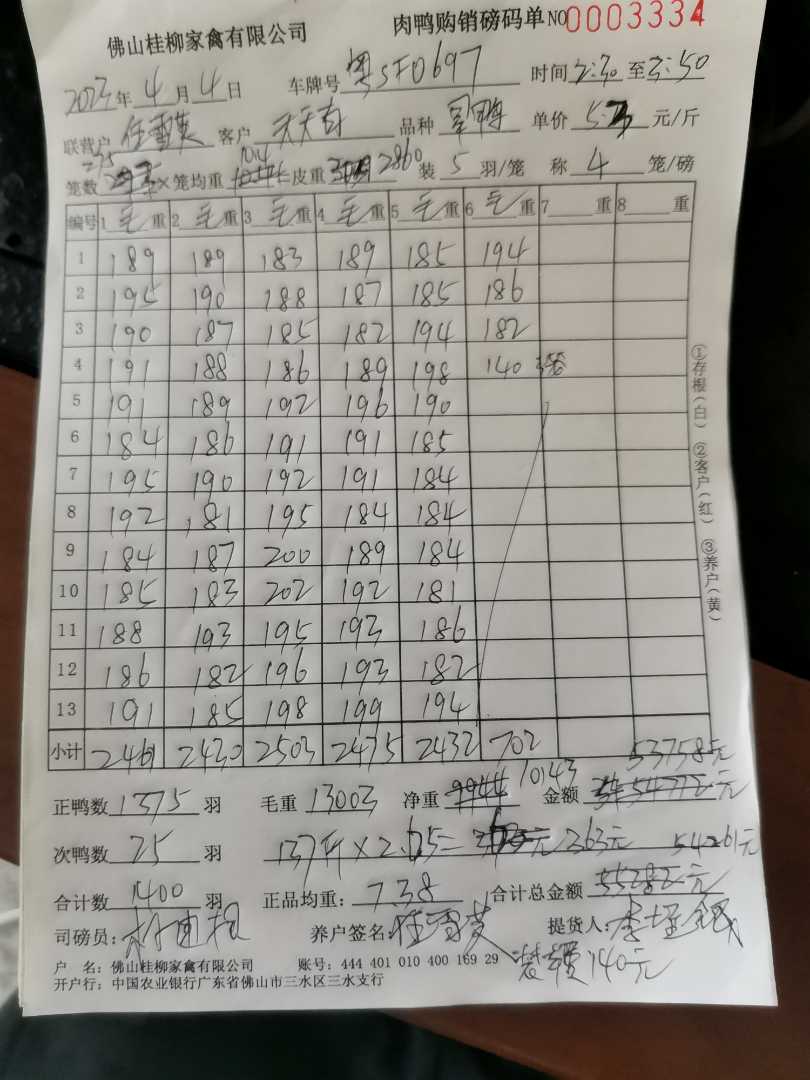 佛山桂柳家禽有限公司 肉鸭购销磅码单 NO 0003334
2023年4月4日 车牌号 粤SF0697 时间 2:30 至 3:50
联营户 任雪英 客户 天天有 品种 单价 元/斤
275 1014
笼数 ×笼均重 皮重 2860 装 5 羽/笼 称 4 笼/磅
编号 1 毛重 2 毛重 3 毛重 4 毛重 5 毛重 6 毛重 7 重 8 重
1 189 189 183 189 185 194
2 195 190 188 187 185 186
3 190 187 185 182 194 182
4 191 188 186 189 198 140 3笼
5 191 189 192 196 190
6 184 186 191 191 185
7 195 190 192 191 184
8 192 181 195 184 184
9 184 187 200 189 184
10 185 183 202 192 181
11 188 193 195 193 186
12 186 182 196 193 182
13 191 185 198 199 194
小计 2461 2430 2503 2475 2432 702
正鸭数 1375 羽 毛重 13003 净重 9944 10143 金额 元
次鸭数 25 羽 137斤×2.65= 363元 54261元
合计数 1400 羽 正品均重: 7.38 合计总金额 元
司磅员: 养户签名: 任雪英 提货人:
装 140元
户 名: 佛山桂柳家禽有限公司 账号: 444 401 010 400 169 29
开户行: 中国农业银行广东省佛山市三水区三水支行
①存根(白) ②客户(红) ③养户(黄)